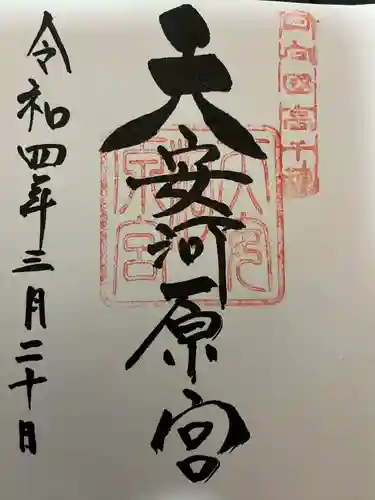 日向國高千穂
天安河原宮
天安河原宮
令和四年三月二十日